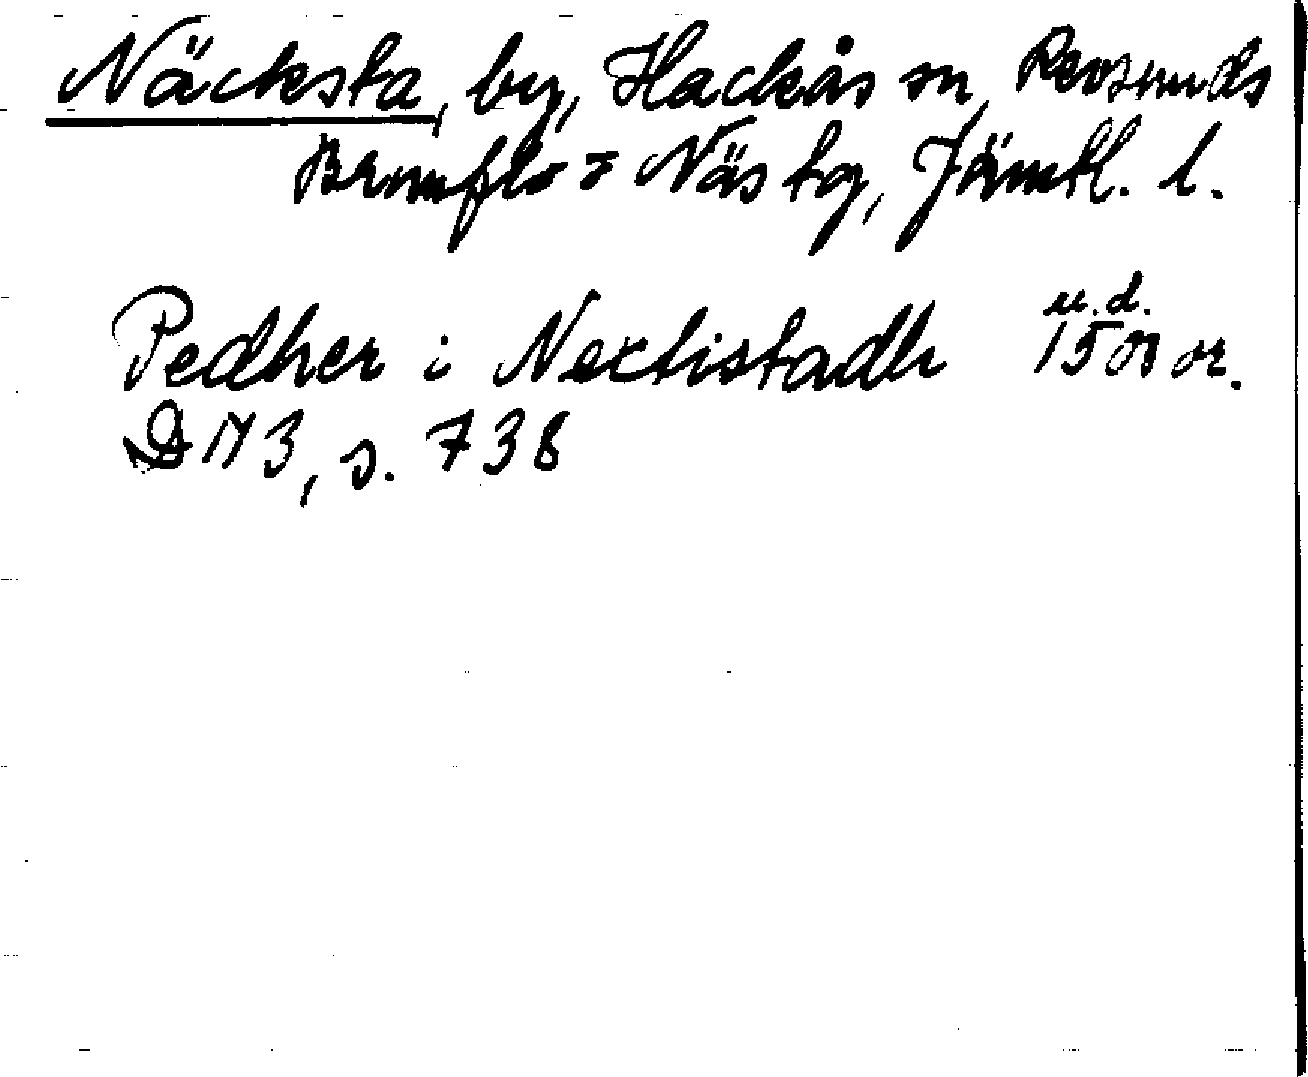 Näcksta, by, Hackås sn, Revsunds
Brunflo o Näs tg, Jämtl. l.
Pedher i Nextistadh u.d. 1500 or.
DN 3, s. 738